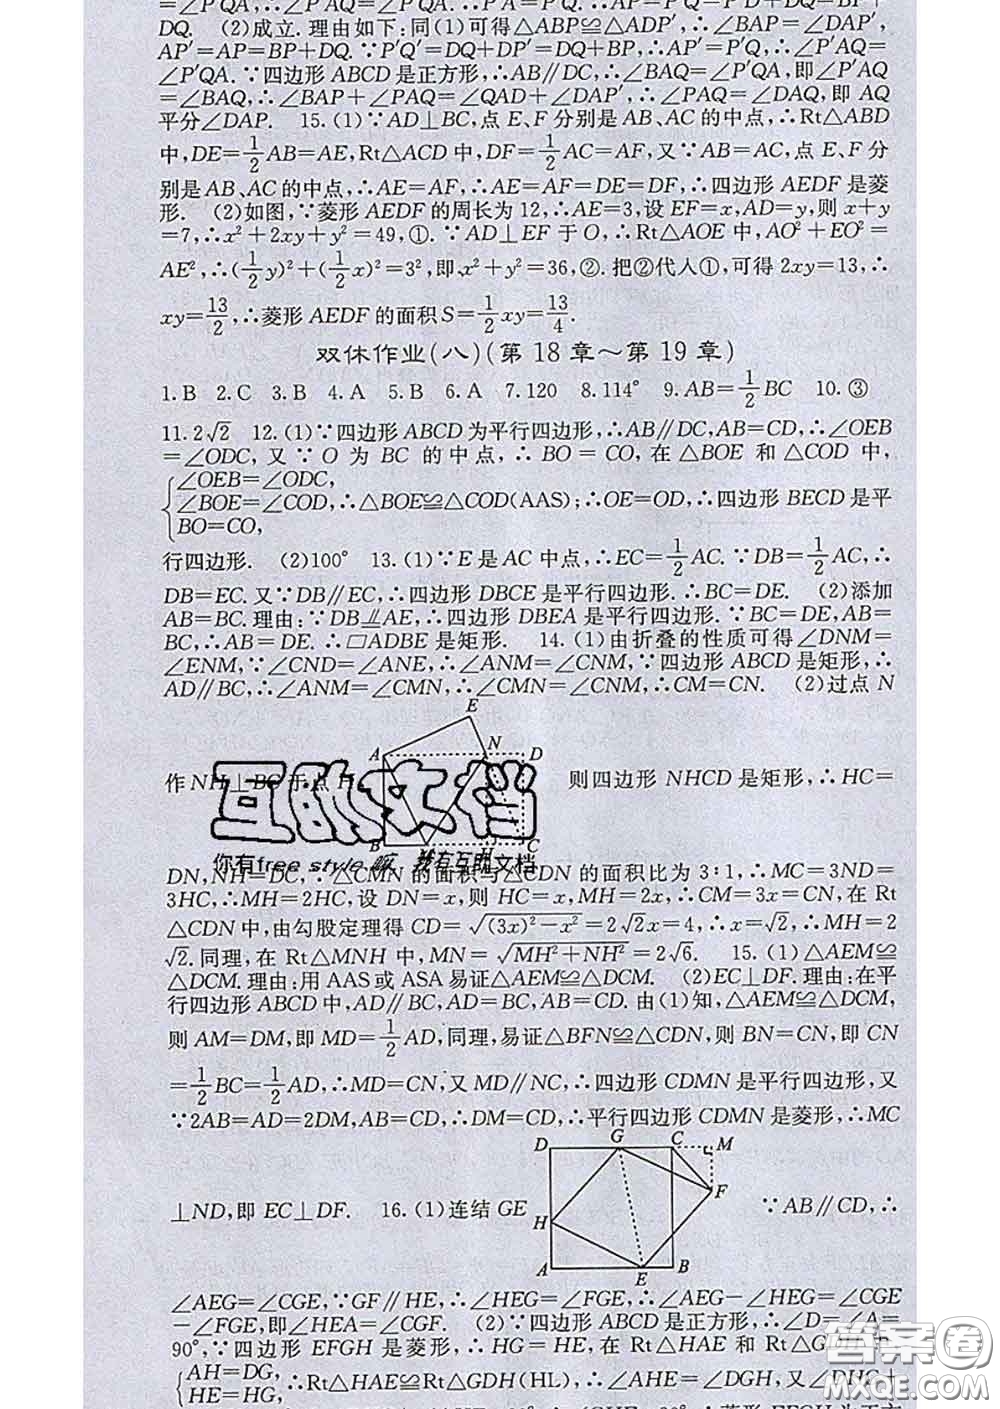 =∠P'QA,∴∠P'AQ=∠P'QA.∴P'A=P'Q.
DQ. (2)成立.理由如下:同(1)可得△ABP≌△ADP',∴∠BAP=∠DAP',
AP'=AP=BP+DQ.∵P'Q'=DQ+DP'=DQ+BP,∴AP'=P'Q,∴∠P'AQ=
∠P'QA.∵四边形ABCD是正方形,∴AB∥DC,∴∠BAQ=∠P'QA,即∠P'AQ
=∠BAQ,∴∠BAP+∠PAQ=∠QAD+∠DAP',∴∠PAQ=∠DAQ,即 AQ
平分∠DAP. 15.(1)∵AD⊥BC,点E、F分别是AB、AC的中点,∴Rt△ABD
中,DE=1/2AB=AE,Rt△ACD中,DF=1/2AC=AF,又∵AB=AC,点E、F分
别是AB、AC的中点,∴AE=AF,∴AE=AF=DE=DF,∴四边形AEDF是菱
形. (2)如图,∵菱形AEDF的周长为12,∴AE=3,设EF=x,AD=y,则x+y
=7,∴x²+2xy+y²=49,①.∵AD⊥EF于O,∴Rt△AOE中,AO²+EO²=
AE²,∴(1/2y)²+(1/2x)²=3²,即x²+y²=36,②.把②代人①,可得2xy=13,∴
xy=13/2,∴菱形AEDF的面积S=1/2xy=13/4.
双休作业(八)(第18章～第19章)
1.B 2.C 3.B 4.A 5.B 6.A 7.120 8.114° 9.AB=1/2BC 10.③
11.2√2 12.(1)∵四边形ABCD为平行四边形,∴AB∥DC,AB=CD,∴∠OEB
=∠ODC,又∵O为BC的中点,∴BO=CO,在△BOE和△COD中,
∠OEB=∠ODC,
∠BOE=∠COD,∴△BOE≌△COD(AAS);∴OE=OD,∴四边形BECD是平
BO=CO,
行四边形. (2)100° 13.(1)∵E是AC中点,∴EC=1/2AC.∵DB=1/2AC,∴
DB=EC.又∵DB∥EC,∴四边形DBCE是平行四边形.∴BC=DE. (2)添加
AB=BC.理由:∵DB⫫AE,∴四边形DBEA是平行四边形.∵BC=DE,AB=
BC,∴AB=DE.∴□ADBE是矩形. 14.(1)由折叠的性质可得∠DNM=
∠ENM,∵∠CND=∠ANE,∴∠ANM=∠CNM,∵四边形ABCD是矩形,∴
AD∥BC,∴∠ANM=∠CMN,∴∠CMN=∠CNM,∴CM=CN. (2)过点N
E
A N D
作NH⊥BC于点H 则四边形NHCD是矩形,∴HC=
互助文档
B H C
你有free style 嘛 我有互助文档
DN,NH=DC,∵△CMN的面积与△CDN的面积比为3:1,∴MC=3ND=
3HC,∴MH=2HC,设DN=x,则HC=x,MH=2x,∴CM=3x=CN,在Rt
△CDN中,由勾股定理得CD=√((3x)²-x²)=2√2x=4,∴x=√2,∴MH=2
√2.同理,在Rt△MNH中,MN=√(MH²+NH²)=2√6. 15.(1)△AEM≌
△DCM.理由:用AAS或ASA易证△AEM≌△DCM. (2)EC⊥DF.理由:在平
行四边形ABCD中,AD∥BC,AD=BC,AB=CD.由(1)知,△AEM≌△DCM,
则AM=DM,即MD=1/2AD,同理,易证△BFN≌△CDN,则BN=CN,即CN
=1/2BC=1/2AD,∴MD=CN,又MD∥NC,∴四边形CDMN是平行四边形,又
∵2AB=AD=2DM,AB=CD,∴DM=CD,∴平行四边形CDMN是菱形,∴MC
D G C M
F
⊥ND,即EC⊥DF. 16.(1)连结GE ∵AB∥CD,∴
H
A E B
∠AEG=∠CGE,∵GF∥HE,∴∠HEG=∠FGE,∴∠AEG-∠HEG=∠CGE
-∠FGE,即∠HEA=∠CGF. (2)∵四边形ABCD是正方形,∴∠D=∠A=
90°,∵四边形EFGH是菱形,∴HG=HE,在Rt△HAE和Rt△GDH中
AH=DG,
∴Rt△HAE≌Rt△GDH(HL),∴∠AHE=∠DGH,又∠DHG+
HE=HG,
答案圈
MXQE.COM